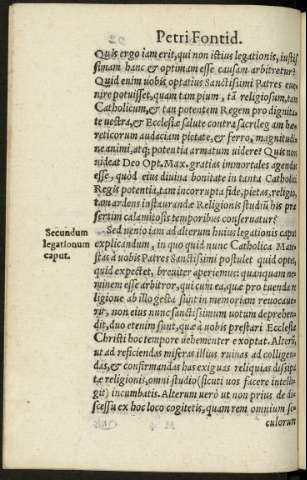 Petri Fontid.
Quis ergo iam erit, qui non istius legationis, iustis
simam hanc & optimam esse causam arbitretur?
Quid enim uobis optatius Sanctissimi Patres eue-
nire potuisset, quam tam pium, tā religiosum, tam
Catholicum, & tan potentem Regem pro dignita-
te uestra, & Ecclesiæ salute contra sacrileg am hæ-
reticorum audaciam pietate, & ferro, magnitudi
ne animi, atq; potentia armatum uidere? Quis non
uideat Deo Opt. Max. gratias immortales agendas
esse, quòd eius diuina bonitate in tanta Catholici
Regis potentia, tam incorrupta fide, pietas, religio,
tam ardens instaurandæ Religionis studiū his præ
sertim calamitosis temporibus conseruatur?
Sed uenio iam ad alterum huius legationis caput
Secundum
legationum
caput.
explicandum, in quo quid nunc Catholica Maie
stas à uobis Patres Sanctissimi postulet quid opte,
quid expectet, breuiter aperiemus: quanquam ne-
minem esse arbitror, qui cum ea, quæ pro tuenda re
ligione ab illo gesta sunt in memoriam reuocaue-
rit, non eius nunc sanctissimum uotum deprehen-
dit, duo etenim sunt, quæ à uobis præstari Ecclesiæ
Christi hoc tempore uehementer exoptat. Alterū,
ut ad reficiendas miseras illius ruinas ad colligen-
das, & confirmandas has exiguas reliquias dissipa
tæ religionis, omni studio (sicuti uos facere intelli-
git) incumbatis. Alterum uerò ut non prius de di-
scessu ex hoc loco cogitetis, quam rem omnium sæ-
culorum